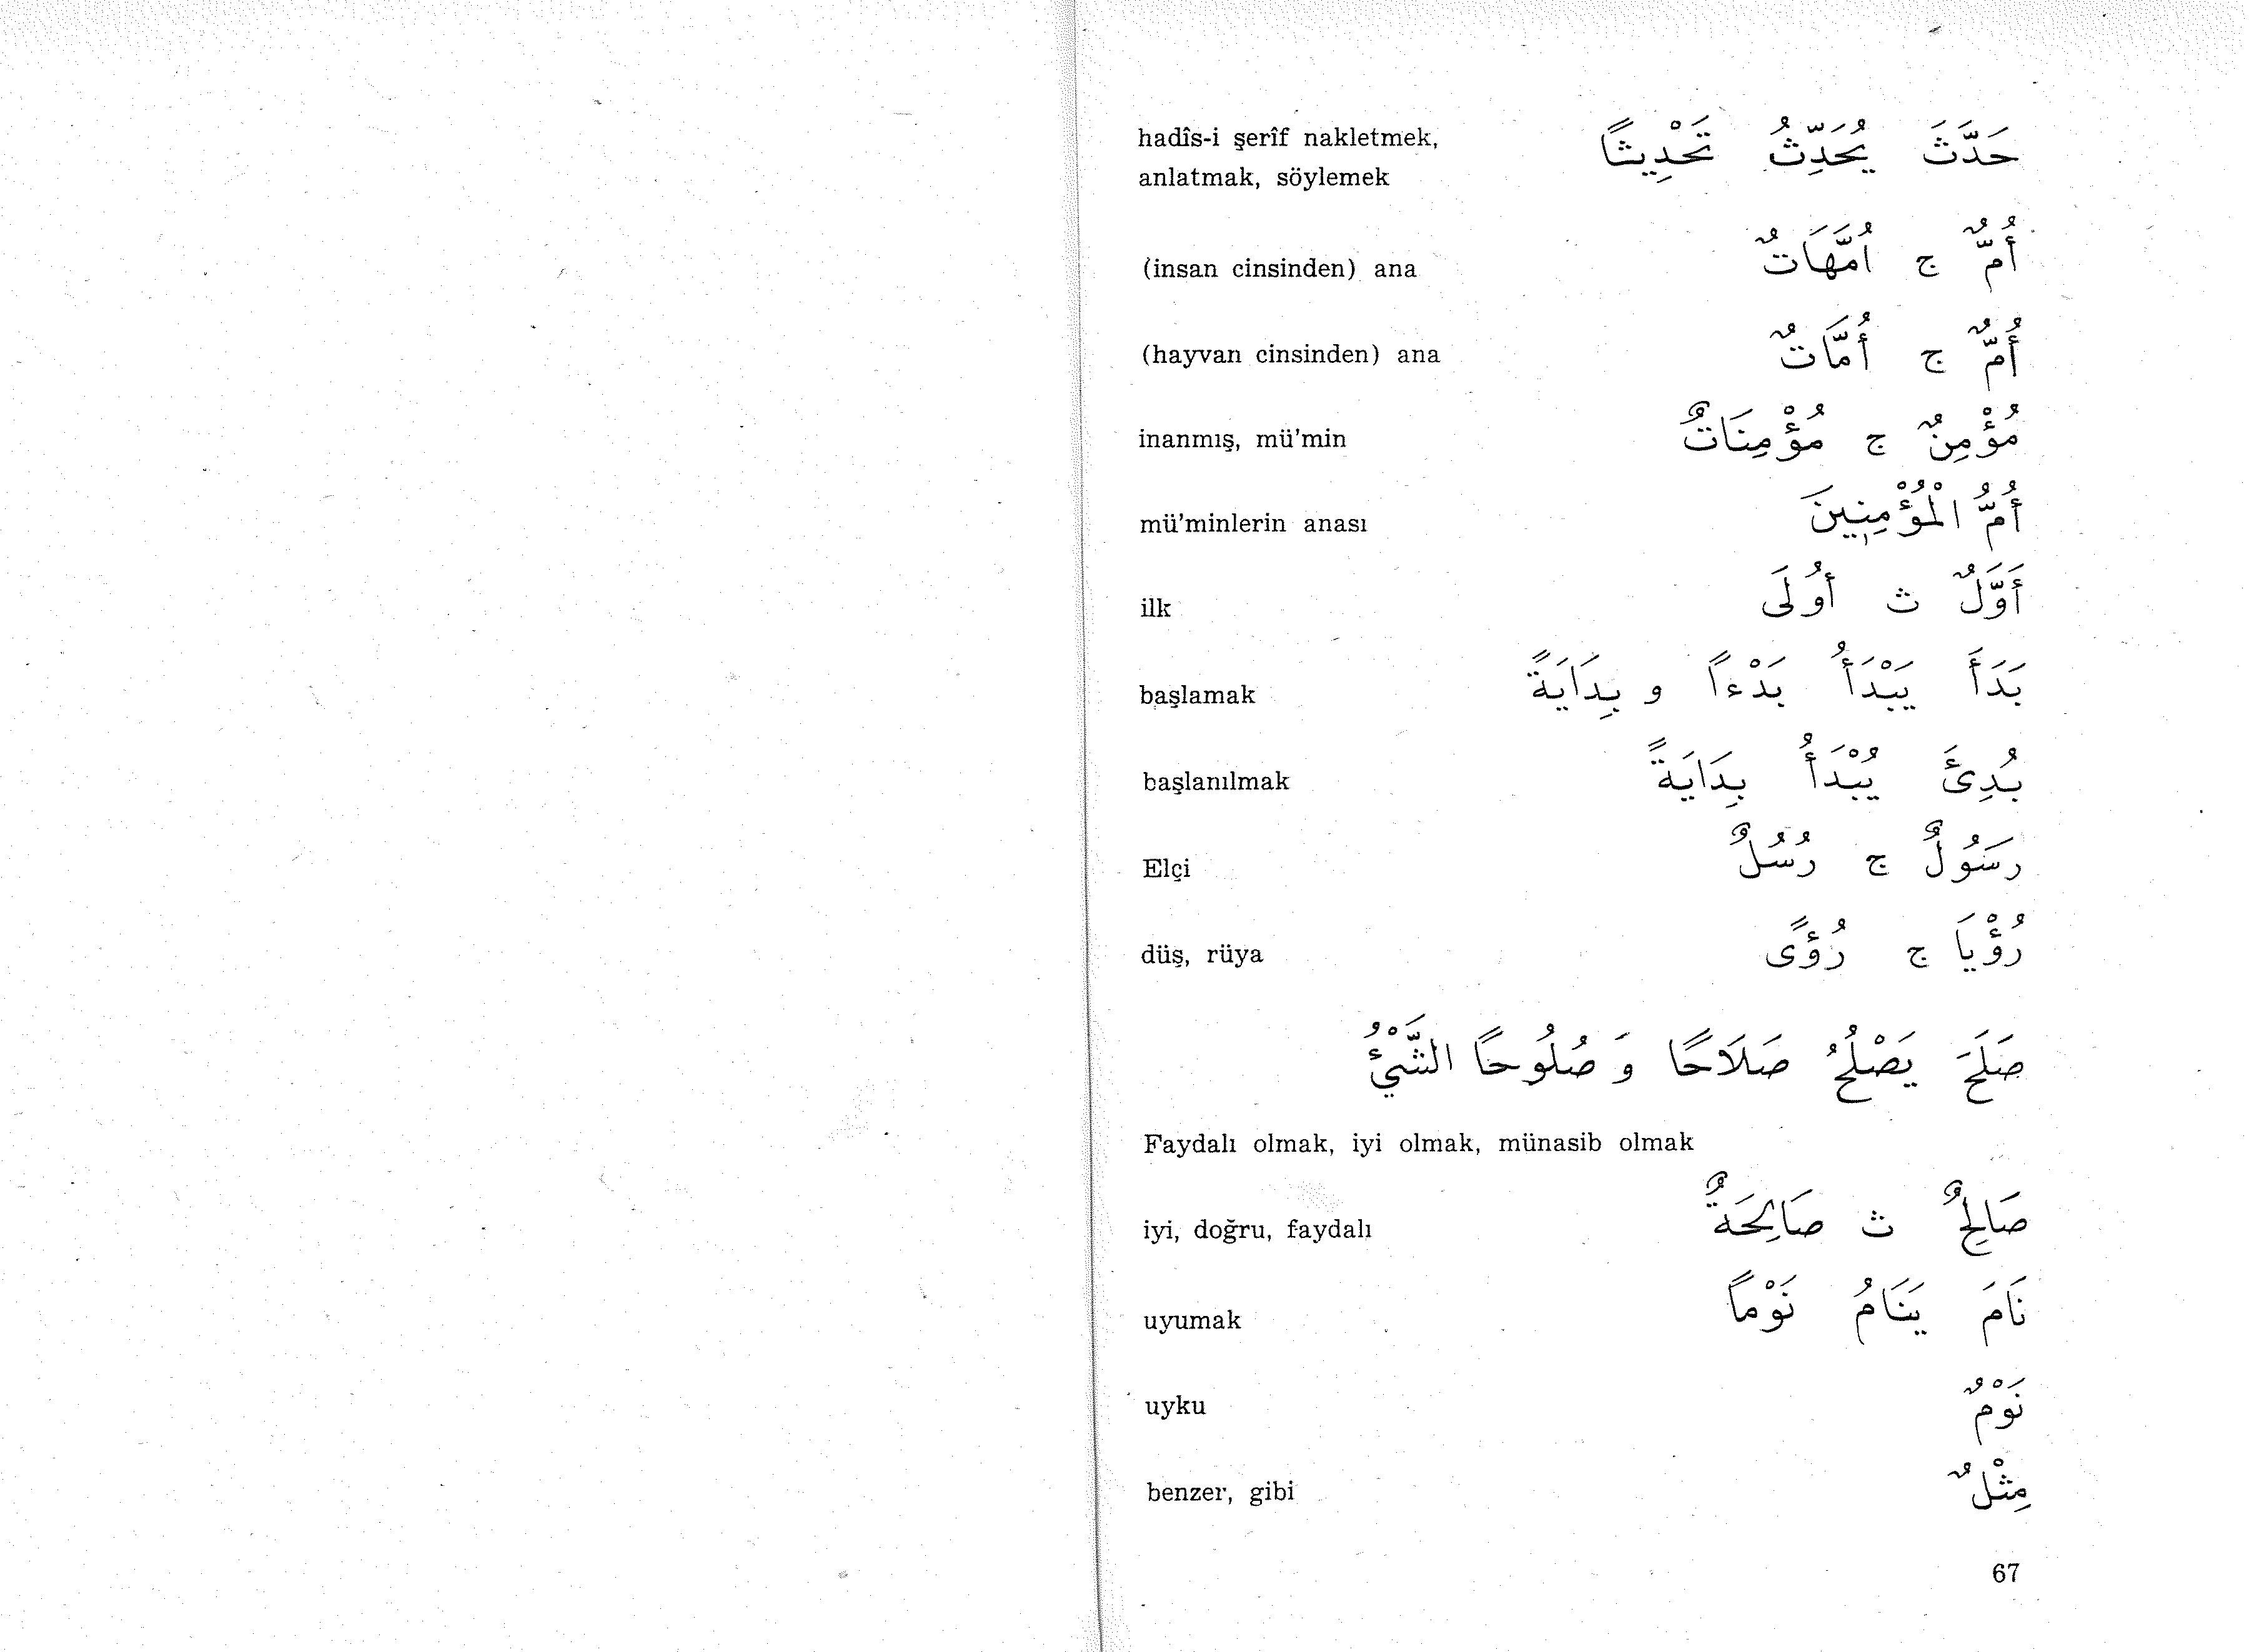 hadîs-i şerîf nakletmek, حَدَّثَ يُحَدِّثُ تَحْدِيثًا
anlatmak, söylemek
(insan cinsinden) ana أُمٌّ ج اُمَّهَاتٌ
(hayvan cinsinden) ana أُمٌّ ج أُمَّاتٌ
inanmış, mü'min مُؤْمِنٌ ج مُؤْمِنَاتٌ
mü'minlerin anası أُمُّ الْمُؤْمِنِينَ
ilk أَوَّلٌ ث أُولَى
başlamak بَدَأَ يَبْدَأُ بَدْءاً و بِدَايَةً
başlanılmak بُدِئَ يُبْدَأُ بِدَايَةً
Elçi رَسُولٌ ج رُسُلٌ
düş, rüya رُؤْيَا ج رُؤًى
صَلَحَ يَصْلُحُ صَلَاحًا وَ صُلُوحًا الشَّيْئُ
Faydalı olmak, iyi olmak, münasib olmak
iyi, doğru, faydalı صَالِحٌ ث صَالِحَةٌ
uyumak نَامَ يَنَامُ نَوْماً
uyku نَوْمٌ
benzer, gibi مِثْلٌ
67